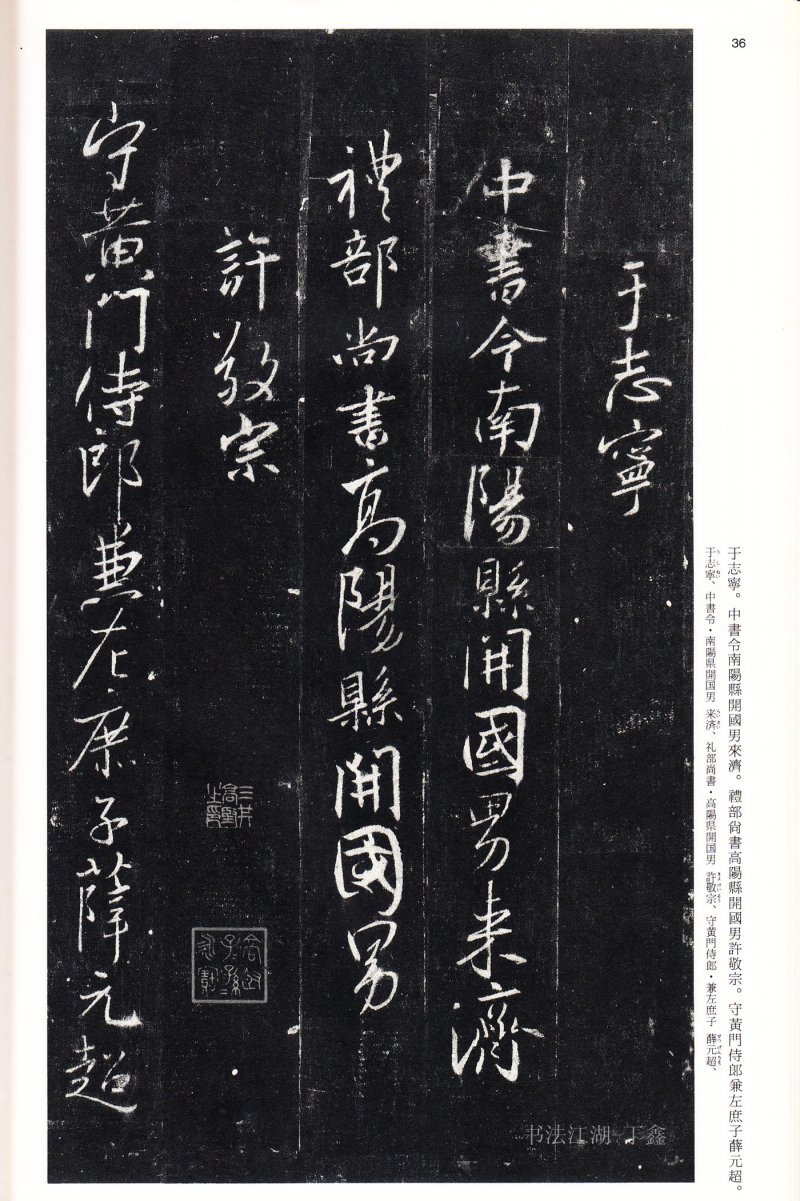 36
于志寧
中書令南陽縣開國男来濟
禮部尚書高陽縣開國男
許敬宗
守黄門侍郎兼左庶子薛元超
于志寧。中書令南陽縣開國男來濟。禮部尙書高陽縣開國男許敬宗。守黃門侍郎兼左庶子薛元超。
于志寧、中書令・南陽県開国男 来済、礼部尚書・高陽県開国男 許敬宗、守黄門侍郎・兼左庶子 薛元超、
书法江湖 丁鑫